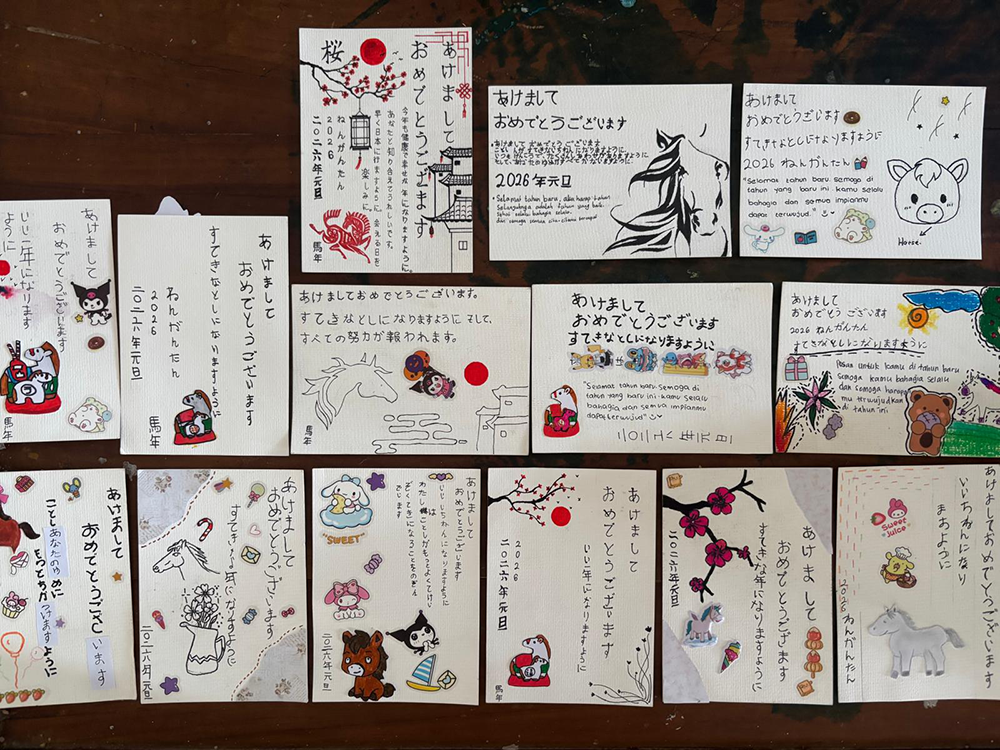 桜
あけまして
おめでとうございます
今年も健康で幸せな年になりますように。
あなたと知り合えてうれしいです。
早く日本に行けますように。会える日を
楽しみに。
ねんがんたん
2026
二〇二六年元旦
馬年
あけまして
おめでとうございます
2026年元旦
あけまして
おめでとうございます
すてきなとしになりますように
2026 ねんがんたん
"Selamat tahun baru semoga di
tahun yang baru ini kamu selalu
bahagia dan semua impianmu
dapat terwujud."
Horse.
あけまして
おめでとうございます
いい年になります
ように
馬年
あけまして
おめでとうございます
すてきなとしになりますように
ねんがんたん
2026
二〇二六年元旦
馬年
あけましておめでとうございます。
すてきなとしになりますように そして、
すべての努力が報われます。
馬年
あけまして
おめでとうございます
すてきなとしになりますように
"Selamat tahun baru semoga di
tahun yang baru ini kamu selalu
bahagia dan semua impianmu
dapat terwujud."
二〇二六年元旦
あけまして
おめでとうございます
2026 ねんがんたん
すてきなとしになりますように
Pesan untuk kamu di tahun ini
semoga kamu bahagia selalu
dan semoga harapan
mu terwujudkan
di tahun ini.
あけまして
おめでとうござ
います
ことしあなたのゆめに
もっとちかづけますように
あけまして
おめでとうございます
すてきな年になりますように
二〇二六年元旦
あけまして
おめでとうございます
いいいちねんになりますように
"SWEET"
二〇二六年元旦
あけまして
おめでとうございます
いい年になりますように
2026
二〇二六年元旦
馬年
あけまして
おめでとうございます
すてきな年になりますように
二〇二六年元旦
あけましておめでとうございます
いいいちねんになり
ますように
Sweet
Juice
2026ねんがんたん